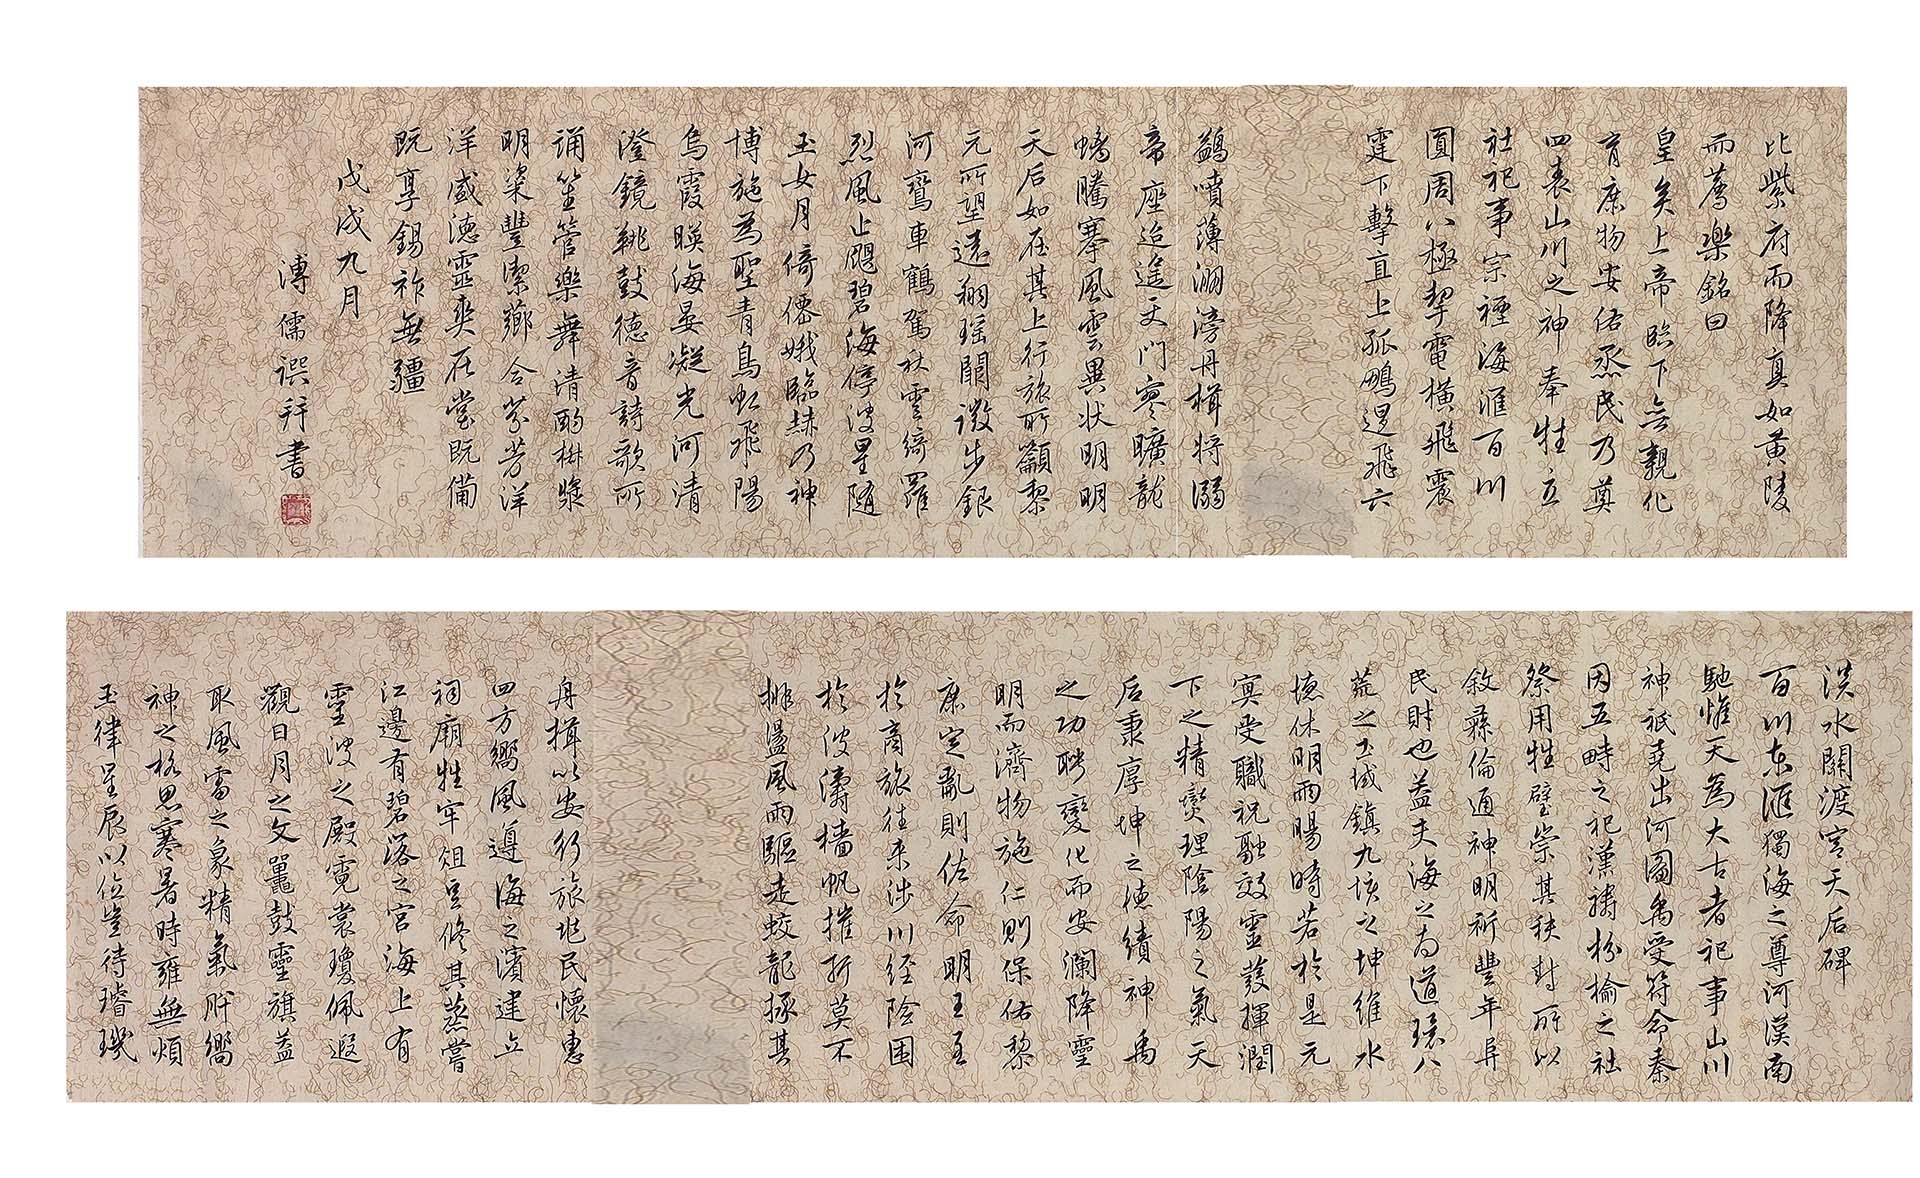 淡水關渡宮天后碑
百川東滙獨海之尊河漠南
馳惟天為大古者祀事山川
神祇堯出河圖禹受符命秦
因五畤之祀漢禱枌榆之社
祭用牲璧崇其秩封所以
敘彝倫通神明祈豐年阜
民財也蓋夫海之為道環八
荒之土域鎮九垓之坤維水
德休明雨暘時若於是元
冥受職祝融效靈發揮潤
下之精燮理陰陽之氣天
后秉厚坤之德績神禹
之功聘變化而安瀾降靈
明而濟物施仁則保佑黎
庶定亂則佐命明王至
於商旅往來涉川經險困
於波濤檣帆摧折莫不
排盪風雨驅走蛟龍拯其
舟楫以安行旅兆民懷惠
四方嚮風遵海之濱建立
祠廟牲牢俎豆修其蒸嘗
江邊有碧落之宮海上有
靈波之殿霓裳瓊佩遐
觀日月之文鼉鼓靈旗益
取風雷之象精氣肸嚮
神之格思寒暑時雍無煩
玉律星辰以位豈待璿璣
比紫府而降真如黃陵
而薦樂銘曰
皇矣上帝臨下無親化
育庶物安佑烝民乃奠
四表山川之神奉牲立
社祀事宗禋海滙百川
圓周八極掣電橫飛震
霆下擊直上孤鵬退飛六
鷁噴薄溯滂舟楫將溺
帝座迢遙天門寥曠龍
螭騰搴風雲異狀明明
天后如在其上行旅所籲黎
元所望遠翔瑤闕微步銀
河鸞車鶴駕秋雲綺羅
烈風止颶碧海停波星隨
玉女月倚僊娥臨赫乃神
博施為聖青鳥虹飛陽
烏霞暎海晏凝光河清
澄鏡鼗鼓德音詩歌所
誦笙管樂舞清酌椒漿
明粢豐潔薌合芬芳洋
洋盛德靈爽在堂既備
既享錫祚無疆
戊戌九月
溥儒譔并書